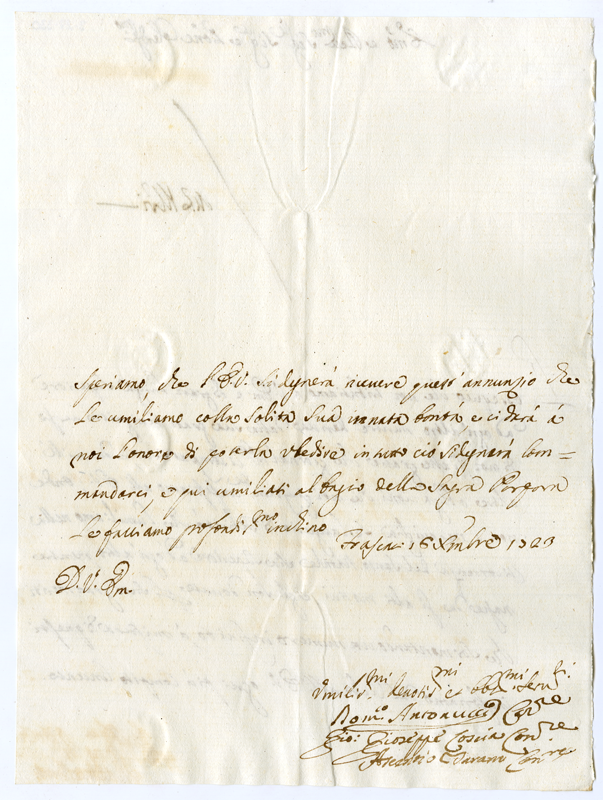 speriamo, che l'E.V. si degnerà ricevere quest'annunzio che
Le umiliamo colla solita Sua innata bontà, e ci darà á
noi l'onore di poterla ubedire in tutto ció si degnerà Com=
mandarci, e qui umiliati al bagio della Sagra Porpora
Le facciamo profondis.mo inchino
Frasca: 16 Xmbre 1723
D. V. Em.
Umilis.mi devotis.mi et obb.mi Serv.ri
Rom.o Antonucci Con.re
Gio: Gioseppe Coscia Con.re
Con.re